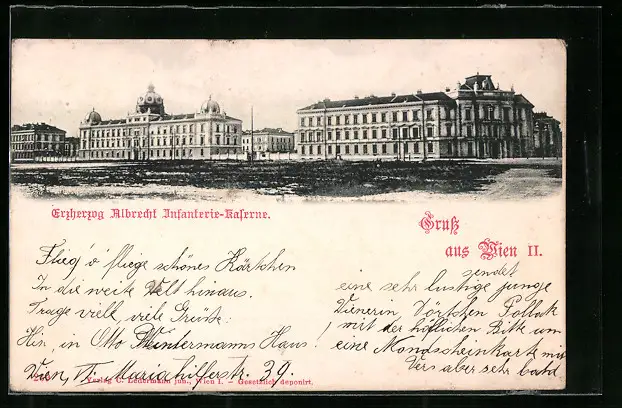 Erzherzog Albrecht Infanterie-Kaserne.
Gruß
aus Wien II.
Flieg' o' fliege schönes Kärtchen
In die weite Welt hinaus.
Trage viell, viele Grüße:
Hin, in Otto Wintermanns Haus!
Wien, II. Mariahilferstr. 39.
sendet
eine sehr lustige junge
Wienerin, Pollak
, mit der höflichen Bitte um
eine Mondscheinkarte mit
Vers aber sehr bald
Verlag C. Ledermann jun., Wien I. – Gesetzlich deponirt.